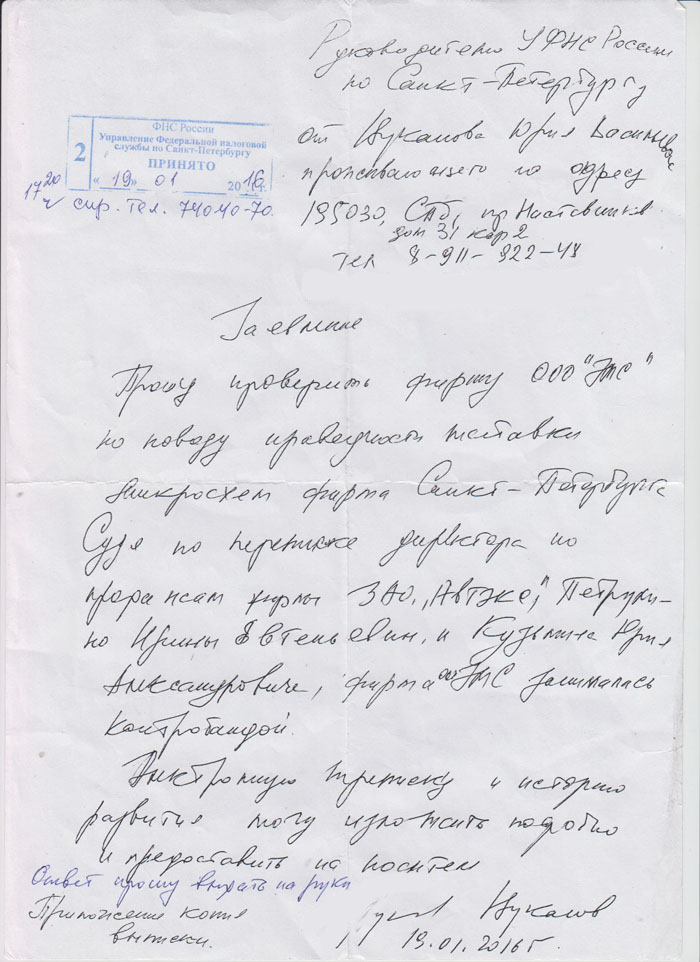 Руководителю УФНС России
по Санкт-Петербургу
от Цукалова Юрия
проживающего по адресу
195030, СПб, пр Наставников
дом 31 кор 2
тел 8-911-922-48
ФНС России
Управление Федеральной налоговой
службы по Санкт-Петербургу
2 ПРИНЯТО
« 19 » 01 2016 г.
17 20
ч спр. тел. 74040-70.
Заявление
Прошу проверить фирму ООО
по поводу поставки
микросхем фирма Санкт-Петербурга
Судя по переписке директора по
фирмы ЗАО „Автэкс",
Ирины и Кузьмина Юрия
Александровича, фирма занималась
контробандой.
Электронную и историю
развития могу изложить подробно
и предоставить на
Ответ прошу выдать на руки
Приложение копия
выписки.
Цукалов
19.01.2016 г.